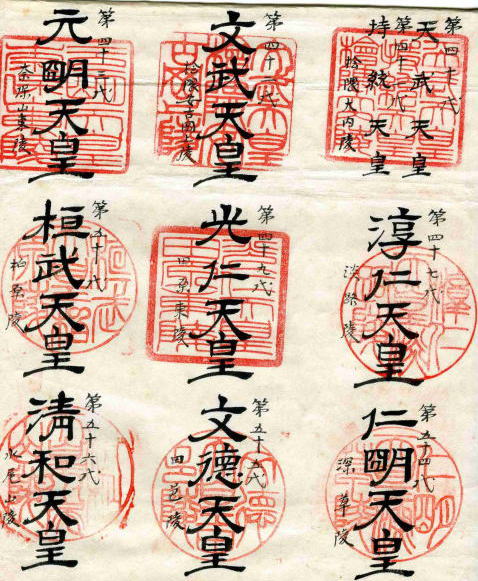 第四十代
天武天皇
第四十一代
持統天皇
檜隈大内陵
第四十二代
文武天皇
檜隈安古岡上陵
第四十三代
元明天皇
奈保山東陵
第四十七代
淳仁天皇
淡路陵
第四十九代
光仁天皇
田原東陵
第五十代
桓武天皇
柏原陵
第五十四代
仁明天皇
深草陵
第五十五代
文德天皇
田邑陵
第五十六代
清和天皇
水尾山陵